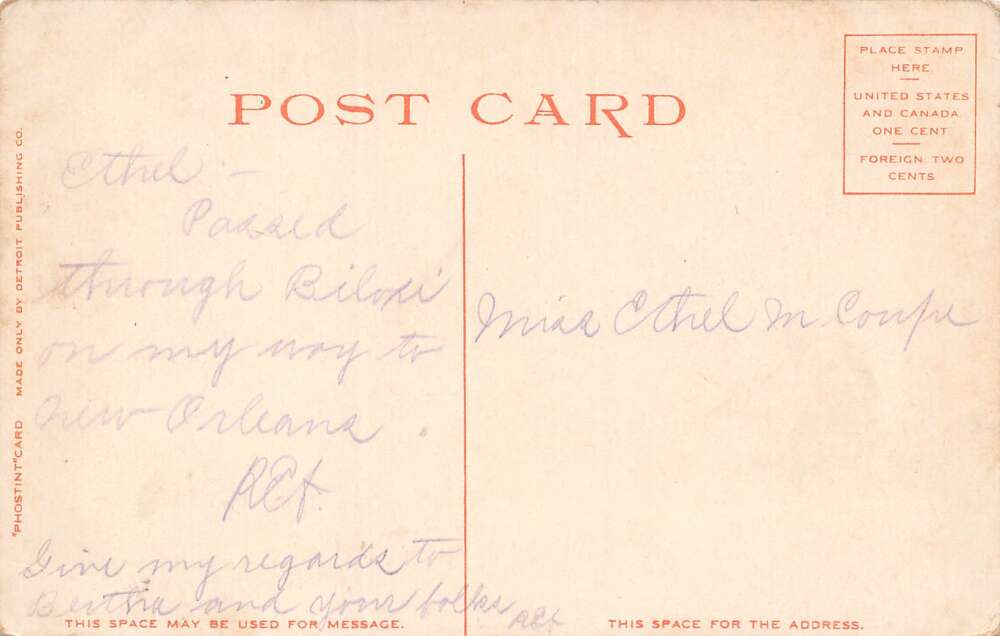 POST CARD
PLACE STAMP
HERE.
UNITED STATES
AND CANADA
ONE CENT.
FOREIGN, TWO
CENTS
"PHOSTINT" CARD MADE ONLY BY DETROIT PUBLISHING CO.
Ethel –
Passed
through Biloxi
on my way to
New Orleans.
Give my regards to
Bertha and your folks
THIS SPACE MAY BE USED FOR MESSAGE.
Miss Ethel M Coupe
THIS SPACE FOR THE ADDRESS.